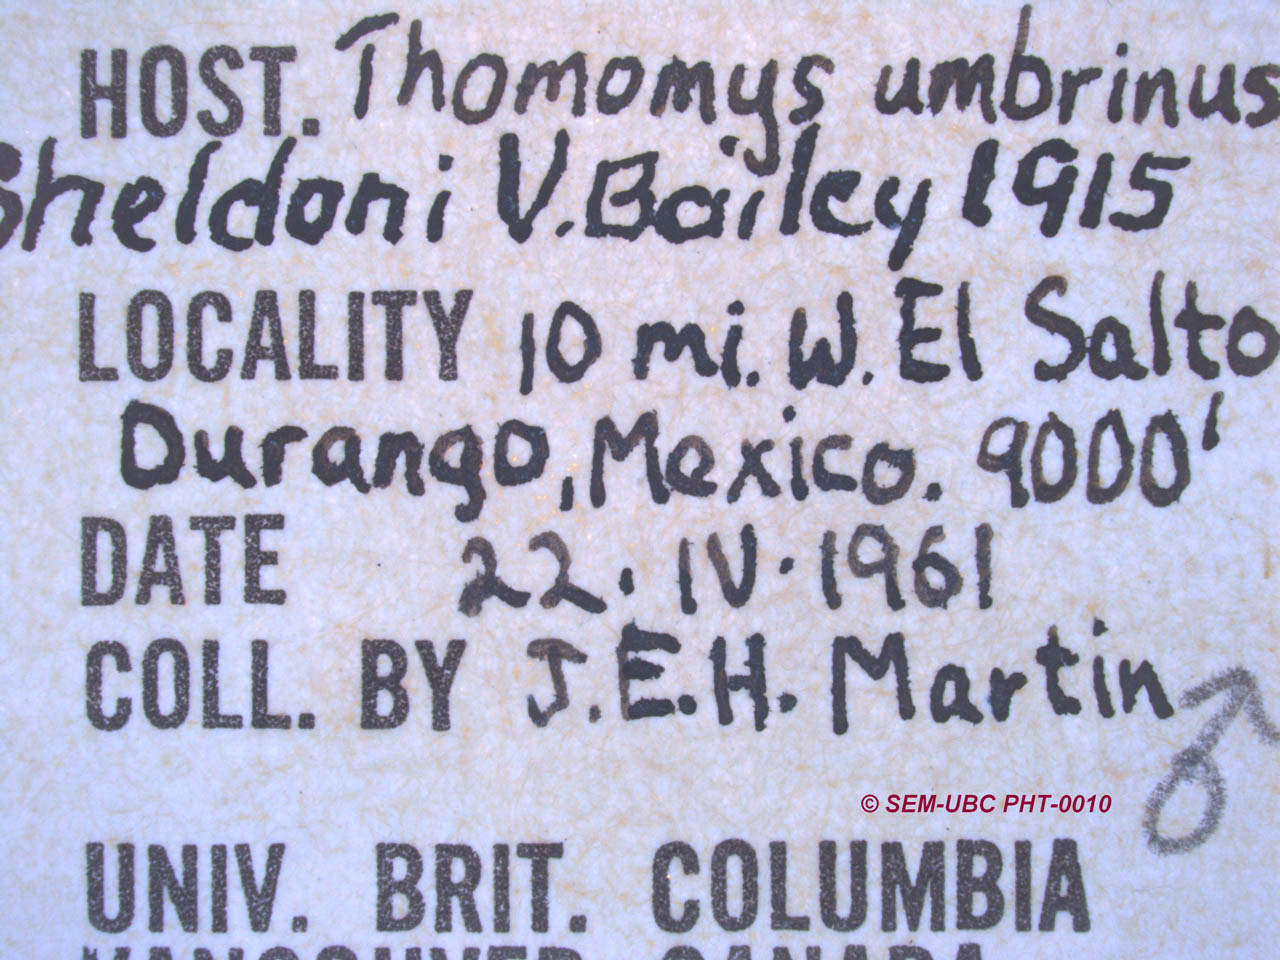 HOST. Thomomys umbrinus
Sheldoni V. Bailey 1915
LOCALITY 10 mi. W. El Salto
Durango, Mexico. 9000'
DATE 22·IV·1961
COLL. BY J.E.H. Martin ♂
© SEM-UBC PHT-0010
UNIV. BRIT. COLUMBIA
VANCOUVER CANADA